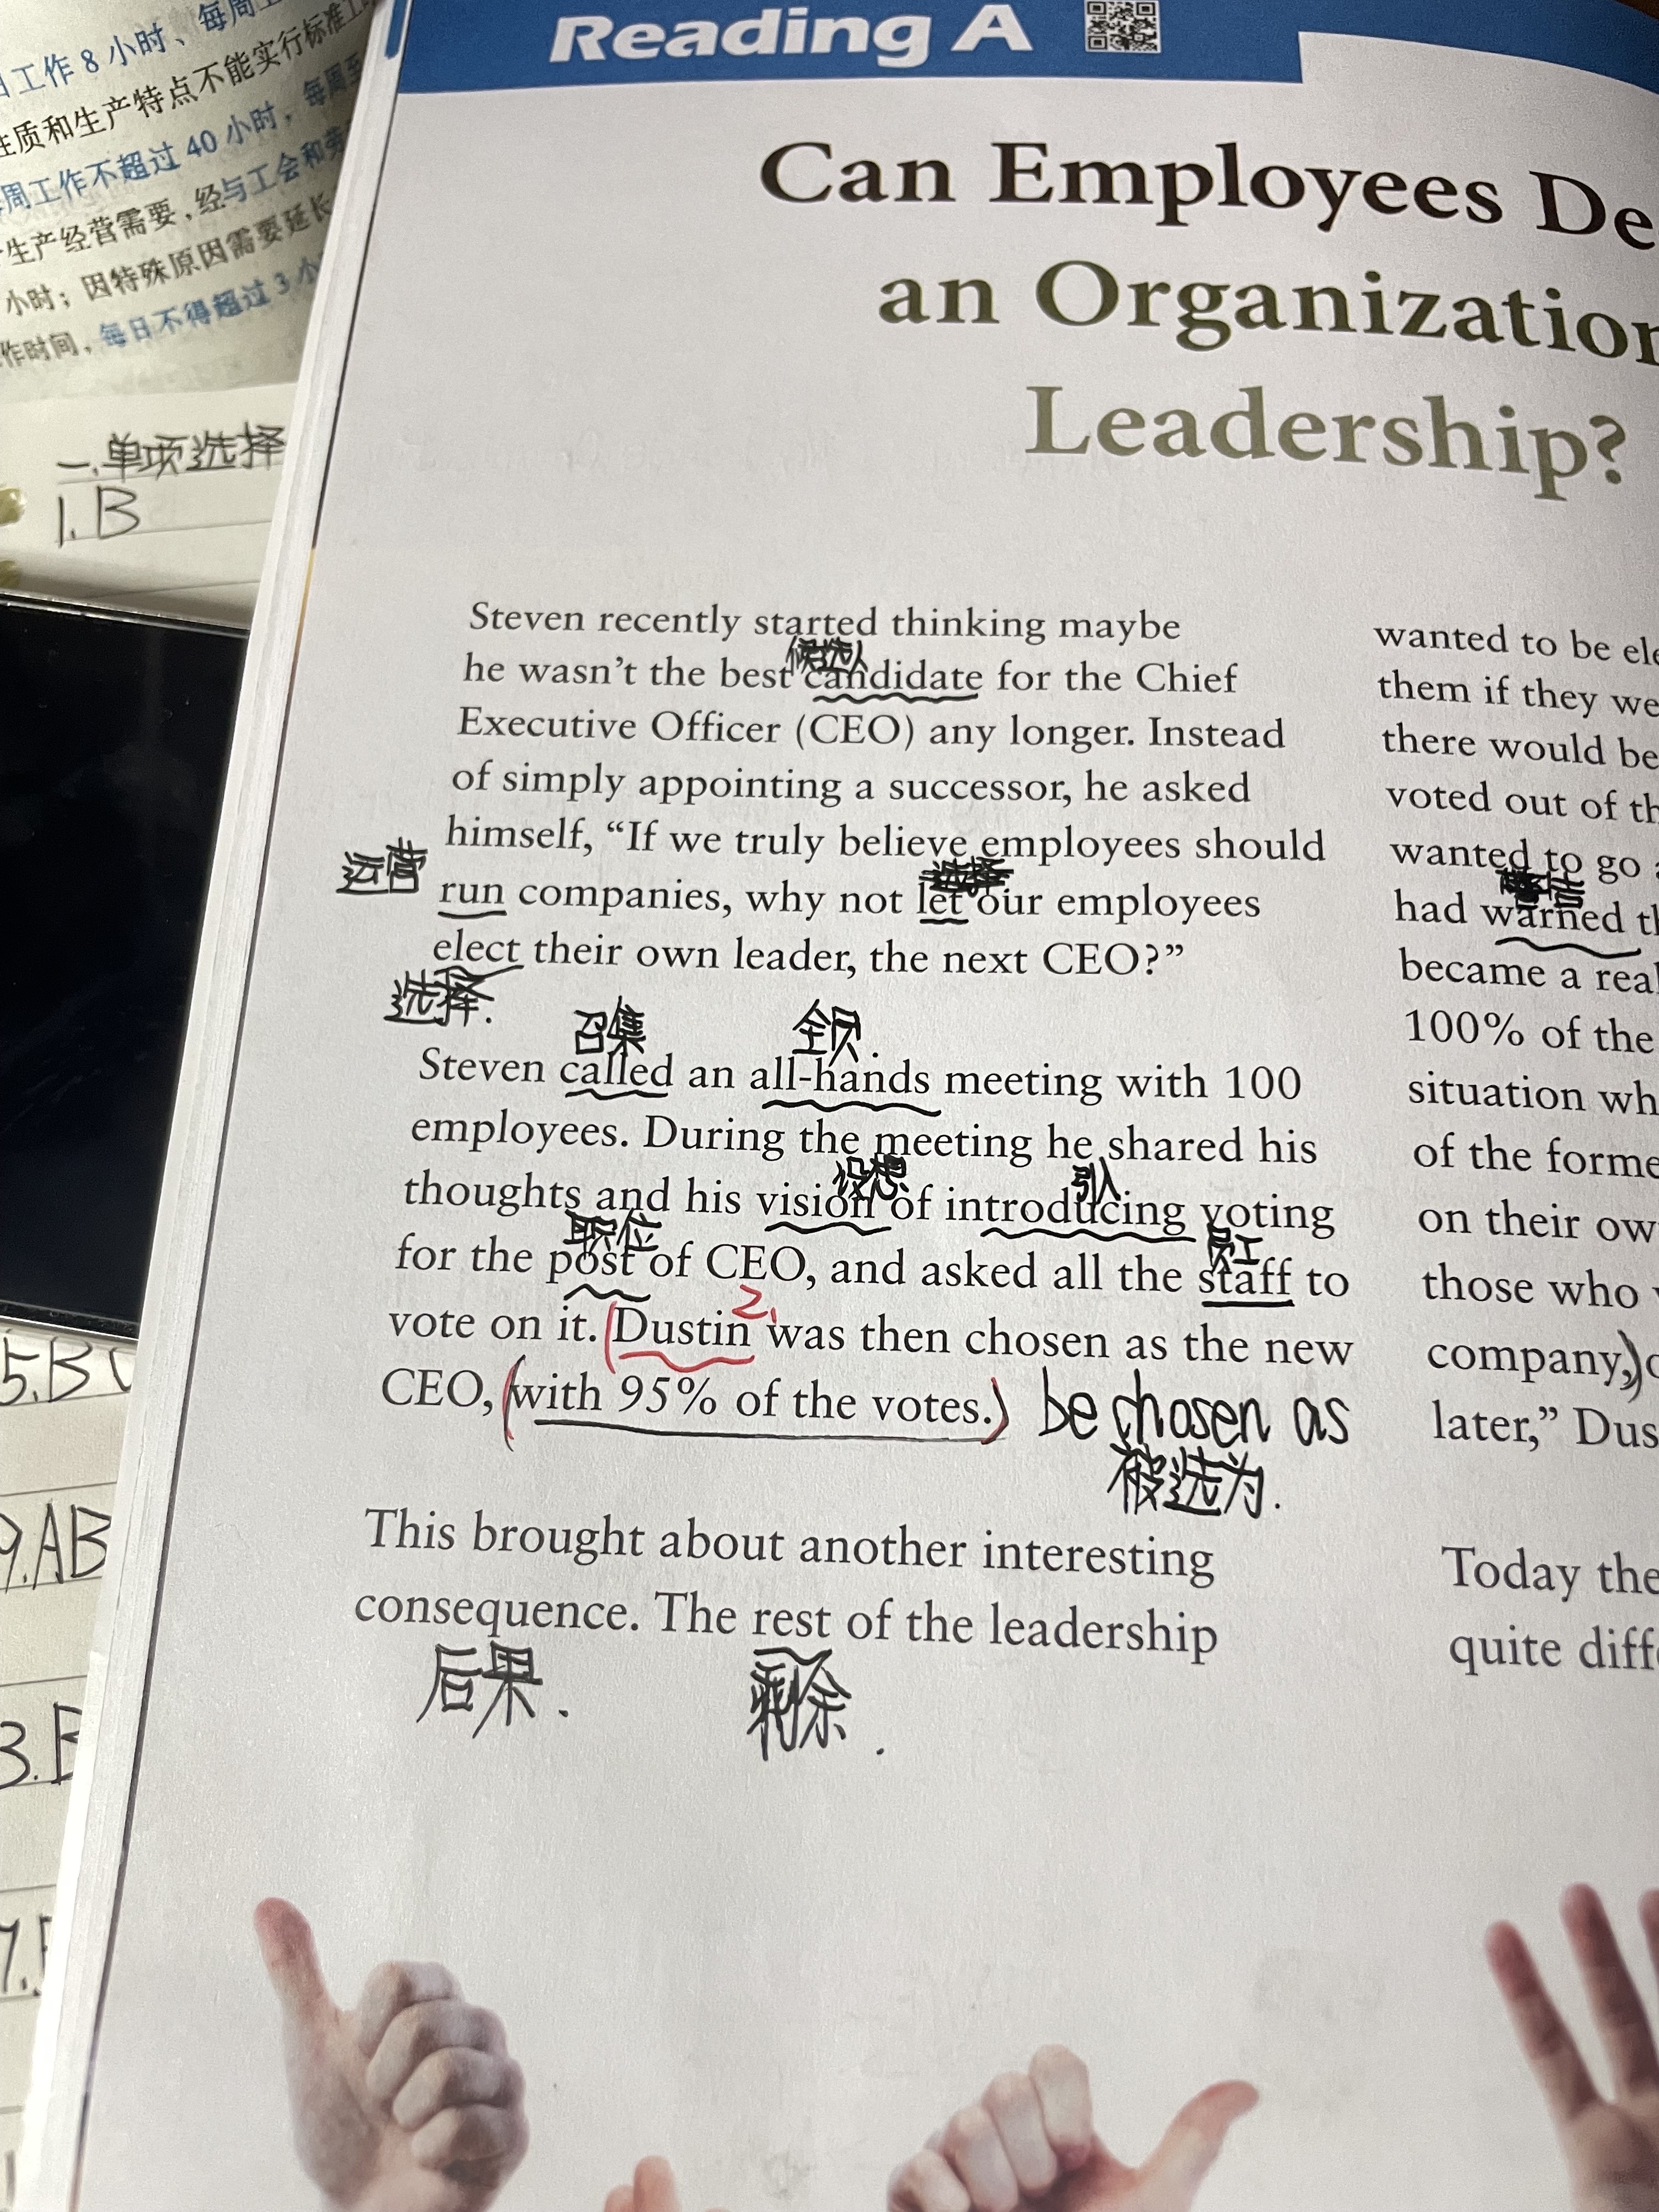 工作8小时、每周工
性质和生产特点不能实行标准工
周工作不超过40小时，每周至
生产经营需要，经与工会和劳
小时；因特殊原因需要延长
作时间，每日不得超过3小
一.单项选择
1.B
5.B
9.AB
3.
7.
Reading A
Can Employees De
an Organization
Leadership?
Steven recently started thinking maybe
候选人
he wasn't the best candidate for the Chief
Executive Officer (CEO) any longer. Instead
of simply appointing a successor, he asked
himself, “If we truly believe employees should
运营
run companies, why not let our employees
elect their own leader, the next CEO?”
选择.
召集 全员.
Steven called an all-hands meeting with 100
employees. During the meeting he shared his
设想 引入
thoughts and his vision of introducing voting
职位 员工
for the post of CEO, and asked all the staff to
2,
vote on it. (Dustin was then chosen as the new
CEO, (with 95% of the votes.) be chosen as
被选为.
This brought about another interesting
consequence. The rest of the leadership
后果. 剩余.
wanted to be ele
them if they we
there would be
voted out of th
wanted to go a
had warned th
became a real
100% of the
situation wh
of the forme
on their ow
those who
company,)
later,” Dus
Today the
quite diffe